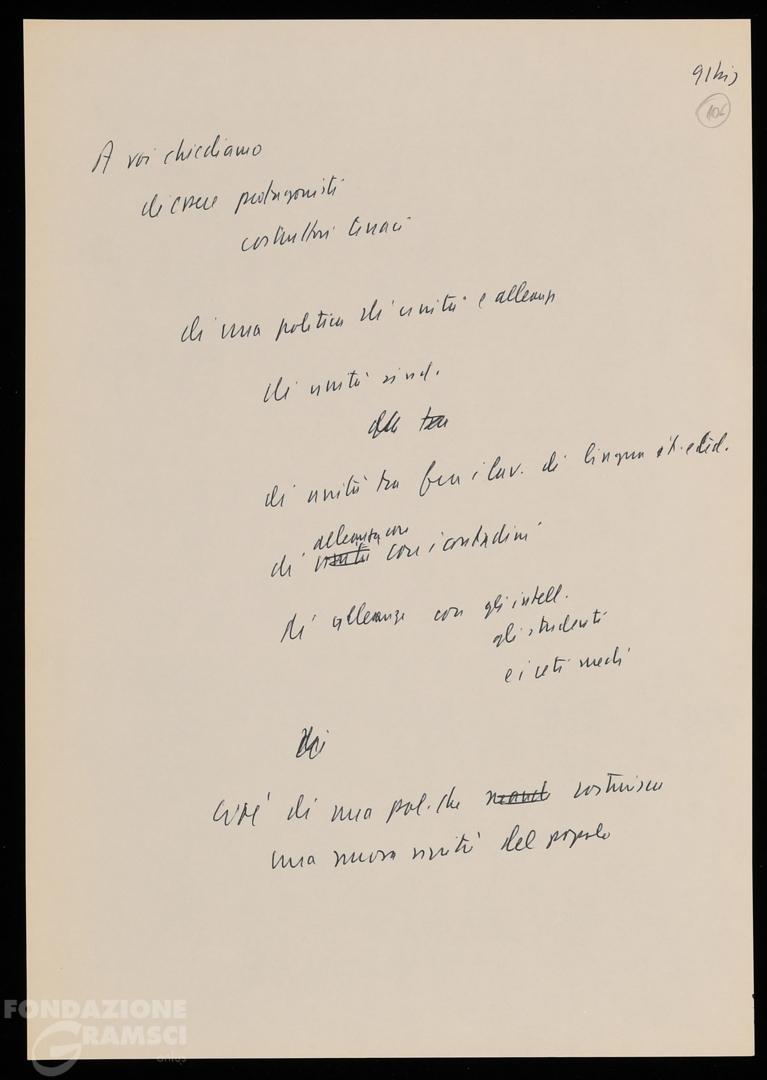 91bis
106
A voi chiediamo
di essere protagonisti
costruttori tenaci
di una politica di unità e alleanze
di unità sind.
di unità tra lav. di lingua it. e ted.
alleanza con
di unità con i contadini
di alleanze con gli intell.
gli studenti
e i ceti medi
cioè di una pol. che costruisca
una nuova unità del popolo
FONDAZIONE
GRAMSCI
onlus